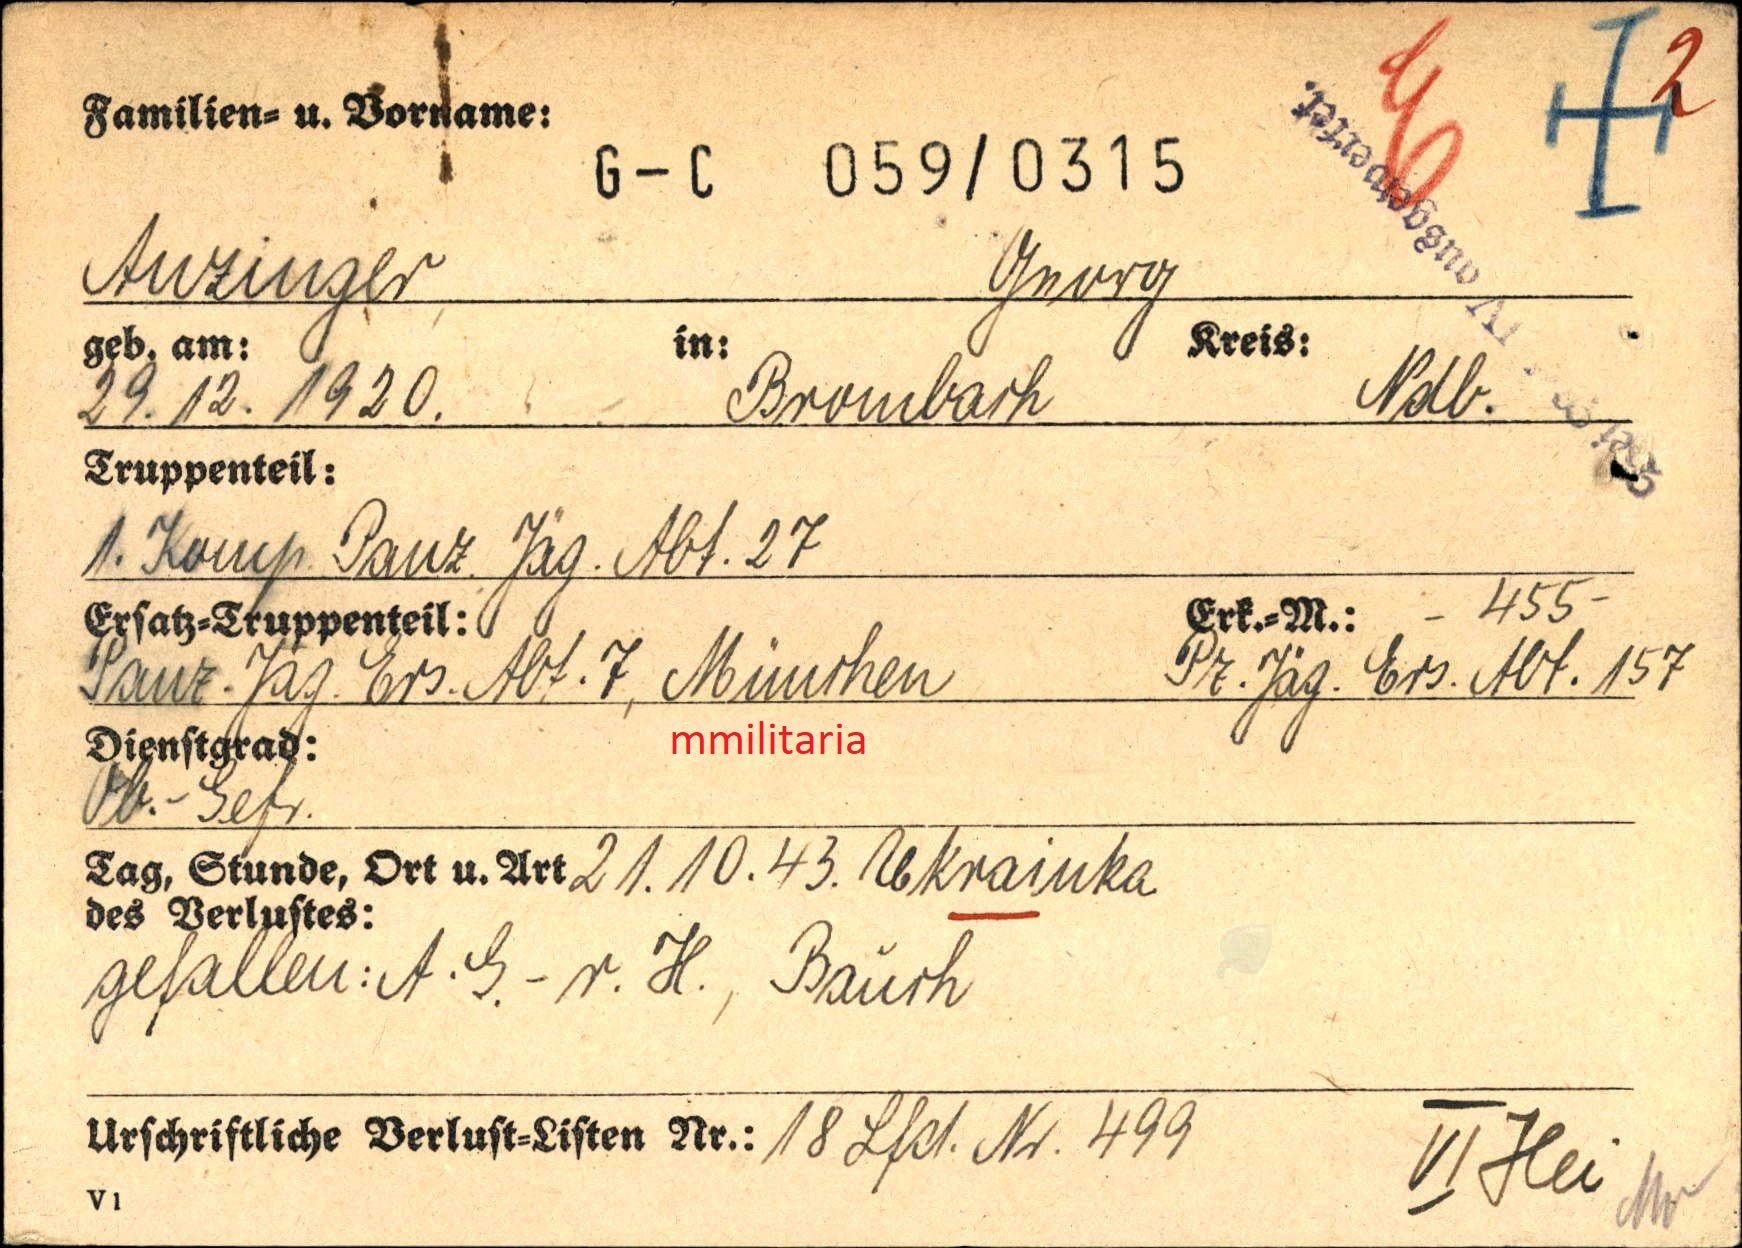 2
Familien- u. Vorname:
G-C 059/0315
Anzinger, Georg
geb. am: in: Kreis:
29. 12. 1920. Brombach Ndb.
Truppenteil:
1. Komp. Panz. Jäg. Abt. 27
Ersatz-Truppenteil: Erk.-M.: - 455 -
Panz. Jäg. Ers. Abt. 7, München Pz. Jäg. Ers. Abt. 157
Dienstgrad:
mmilitaria
Ob.-Gefr.
Tag, Stunde, Ort u. Art 21. 10. 43. Ukrainka
des Verlustes:
gefallen: A. G. - r. H., Bauch
Urschriftliche Verlust-Listen Nr.: 18 Lfd. Nr. 499
VI Hei
V 1
bei Gr. IV ausgewertet.